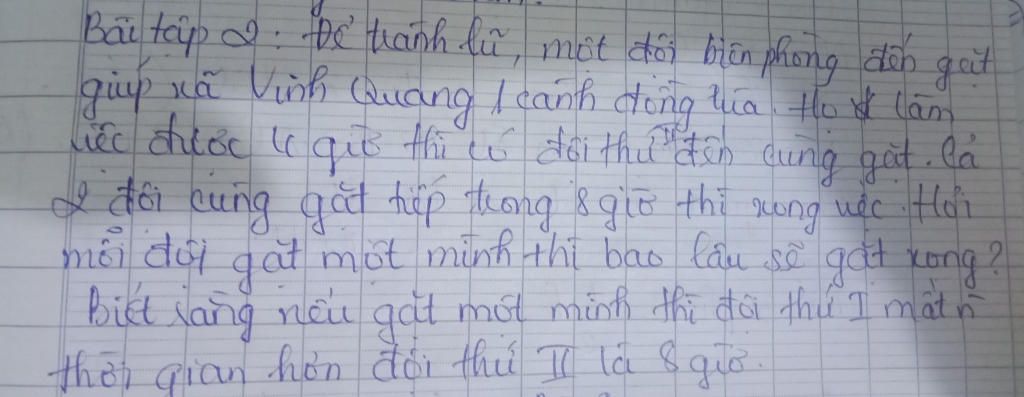 Bài tập 2: Để tránh lũ, một đội biên phòng đến gặt
giúp xã Vinh Quang 1 cánh đồng lúa. Họ làm
việc được 4 giờ thì có đội thứ II đến cùng gặt. Cả
2 đội cùng gặt tiếp trong 8 giờ thì xong việc. Hỏi
mỗi đội gặt một mình thì bao lâu sẽ gặt xong?
Biết rằng nếu gặt một mình thì đội thứ I mất n
thời gian hơn đội thứ II là 8 giờ.